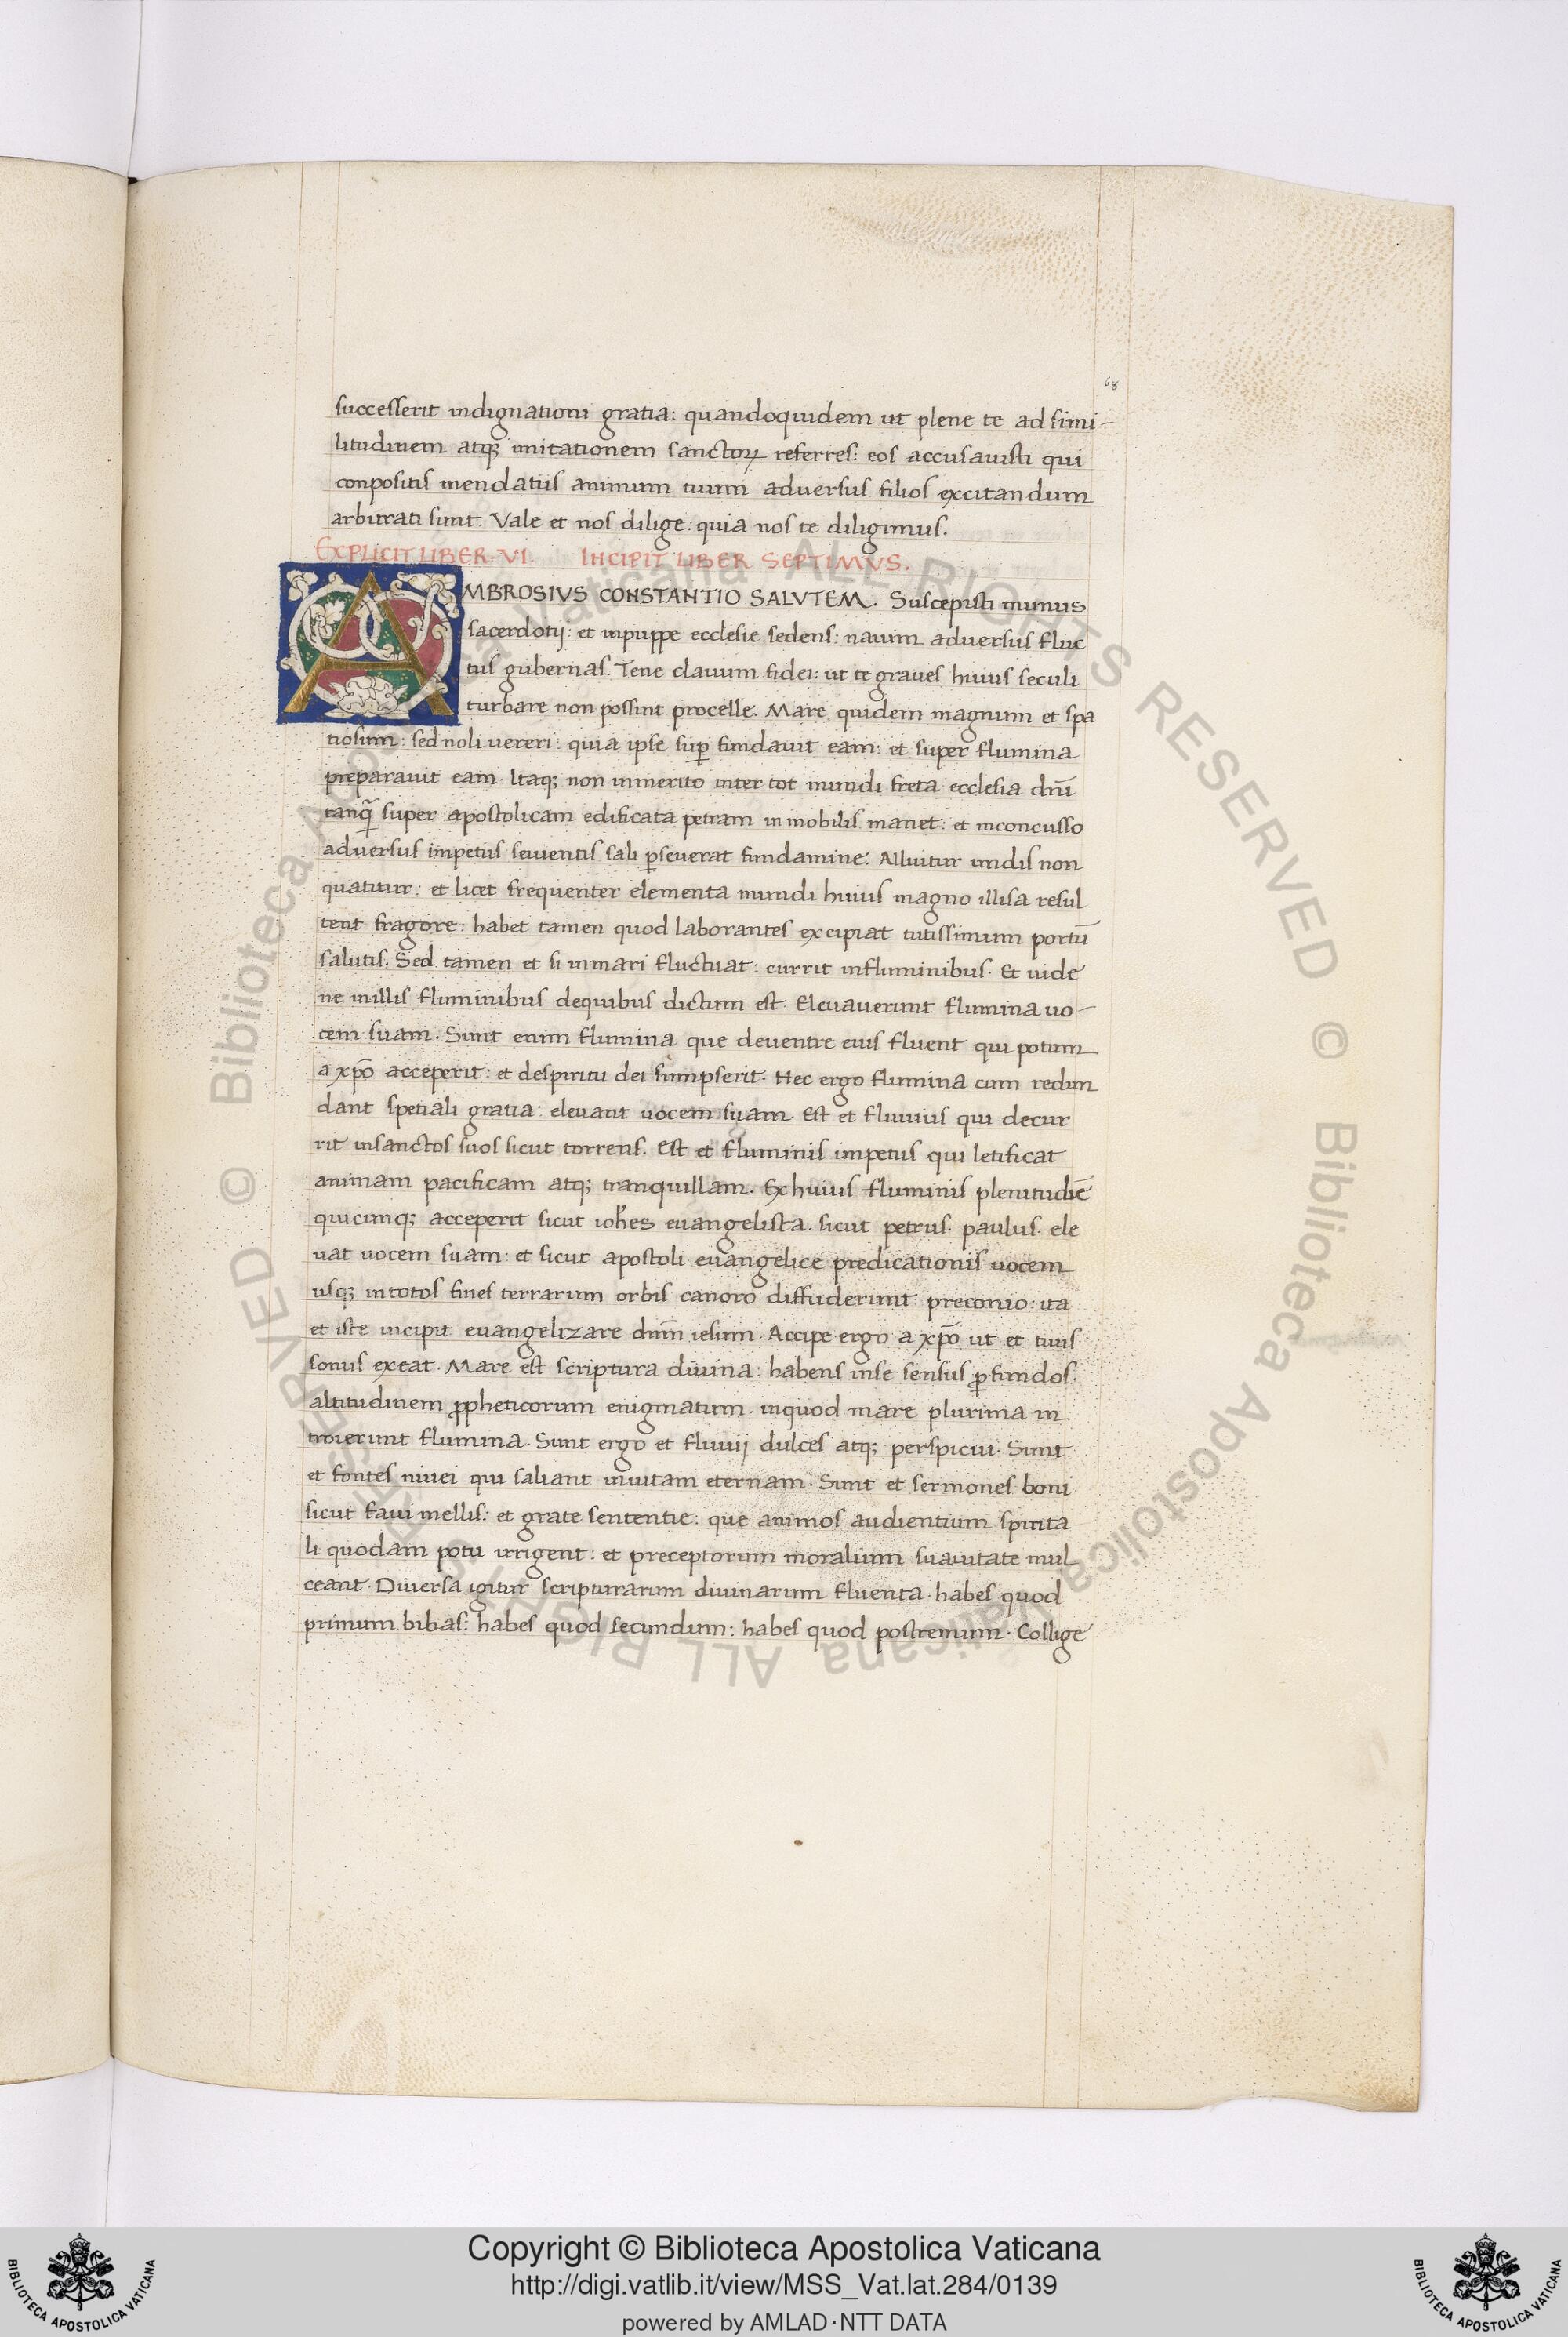 68
successerit indignationi gratia: quandoquidem ut plene te ad simi-
litudinem atq; imitationem sanctoꝝ referres: eos accusavisti qui
conpositis mendatiis animum tuum adversus filios excitandum
arbitrati sunt. Vale et nos dilige: quia nos te diligimus.
EXPLICIT LIBER·VI. INCIPIT LIBER SEPTIMVS.
AMBROSIVS CONSTANTIO SALVTEM. Suscepisti munus
sacerdotij: et inpuppe ecclesie sedens: navim adversus fluc
tus gubernas. Tene clavum fidei: ut te graves huius seculi
turbare non possint procelle. Mare quidem magnum et spa
tiosum: sed noli vereri: quia ipse suꝑ fundavit eam: et super flumina
preparavit eam. Itaq; non inmerito inter tot mundi freta ecclesia dnī
tanq̄ super apostolicam edificata petram inmobilis manet: et inconcusso
adversus impetus sevientis sali ꝑseverat fundamine. Alluitur undis non
quatitur: et licet frequenter elementa mundi huius magno illisa resul
tent fragore: habet tamen quod laborantes excipiat tutissimum portū
salutis. Sed tamen et si inmari fluctuat: currit influminibus. Et vide
ne inillis fluminibus dequibus dictum est. Elevaverunt flumina vo-
cem suam. Sunt enim flumina que deventre eius fluent qui potum
a xp̄o acceperit: et despiritu dei sumpserit. Hec ergo flumina cum redun
dant spetiali gratia: elevant vocem suam. Est et fluvius qui decur
rit insanctos suos sicut torrens. Est et fluminis impetus qui letificat
animam pacificam atq; tranquillam. Exhuius fluminis plenitudīe
quicunq; acceperit sicut ioh̄es evangelista. sicut petrus. paulus. ele
vat vocem suam: et sicut apostoli evangelice predicationis vocem
usq; intotos fines terrarum orbis canoro diffuderunt preconio: ita
et iste incipit evangelizare dn̄m iesum. Accipe ergo a xp̄o ut et tuus
sonus exeat. Mare est scriptura divina: habens inse sensus ꝓfundos.
altitudinem ꝓpheticorum enigmatum. inquod mare plurima in
troierunt flumina. Sunt ergo et fluvij dulces atq; perspicui. Sunt
et fontes nivei qui saliant invitam eternam. Sunt et sermones boni
sicut favi mellis: et grate sententie: que animos audientium spirita
li quodam potu irrigent: et preceptorum moralium suavitate mul
ceant. Diversa igitur scripturarum divinarum fluenta. habes quod
primum bibas: habes quod secundum: habes quod postremum. Collige
© Biblioteca Apostolica Vaticana ALL RIGHTS RESERVED © Biblioteca Apostolica Vaticana ALL RIGHTS RESERVED
Copyright © Biblioteca Apostolica Vaticana
http://digi.vatlib.it/view/MSS_Vat.lat.284/0139
powered by AMLAD·NTT DATA
BIBLIOTECA APOSTOLICA VATICANA
BIBLIOTECA APOSTOLICA VATICANA